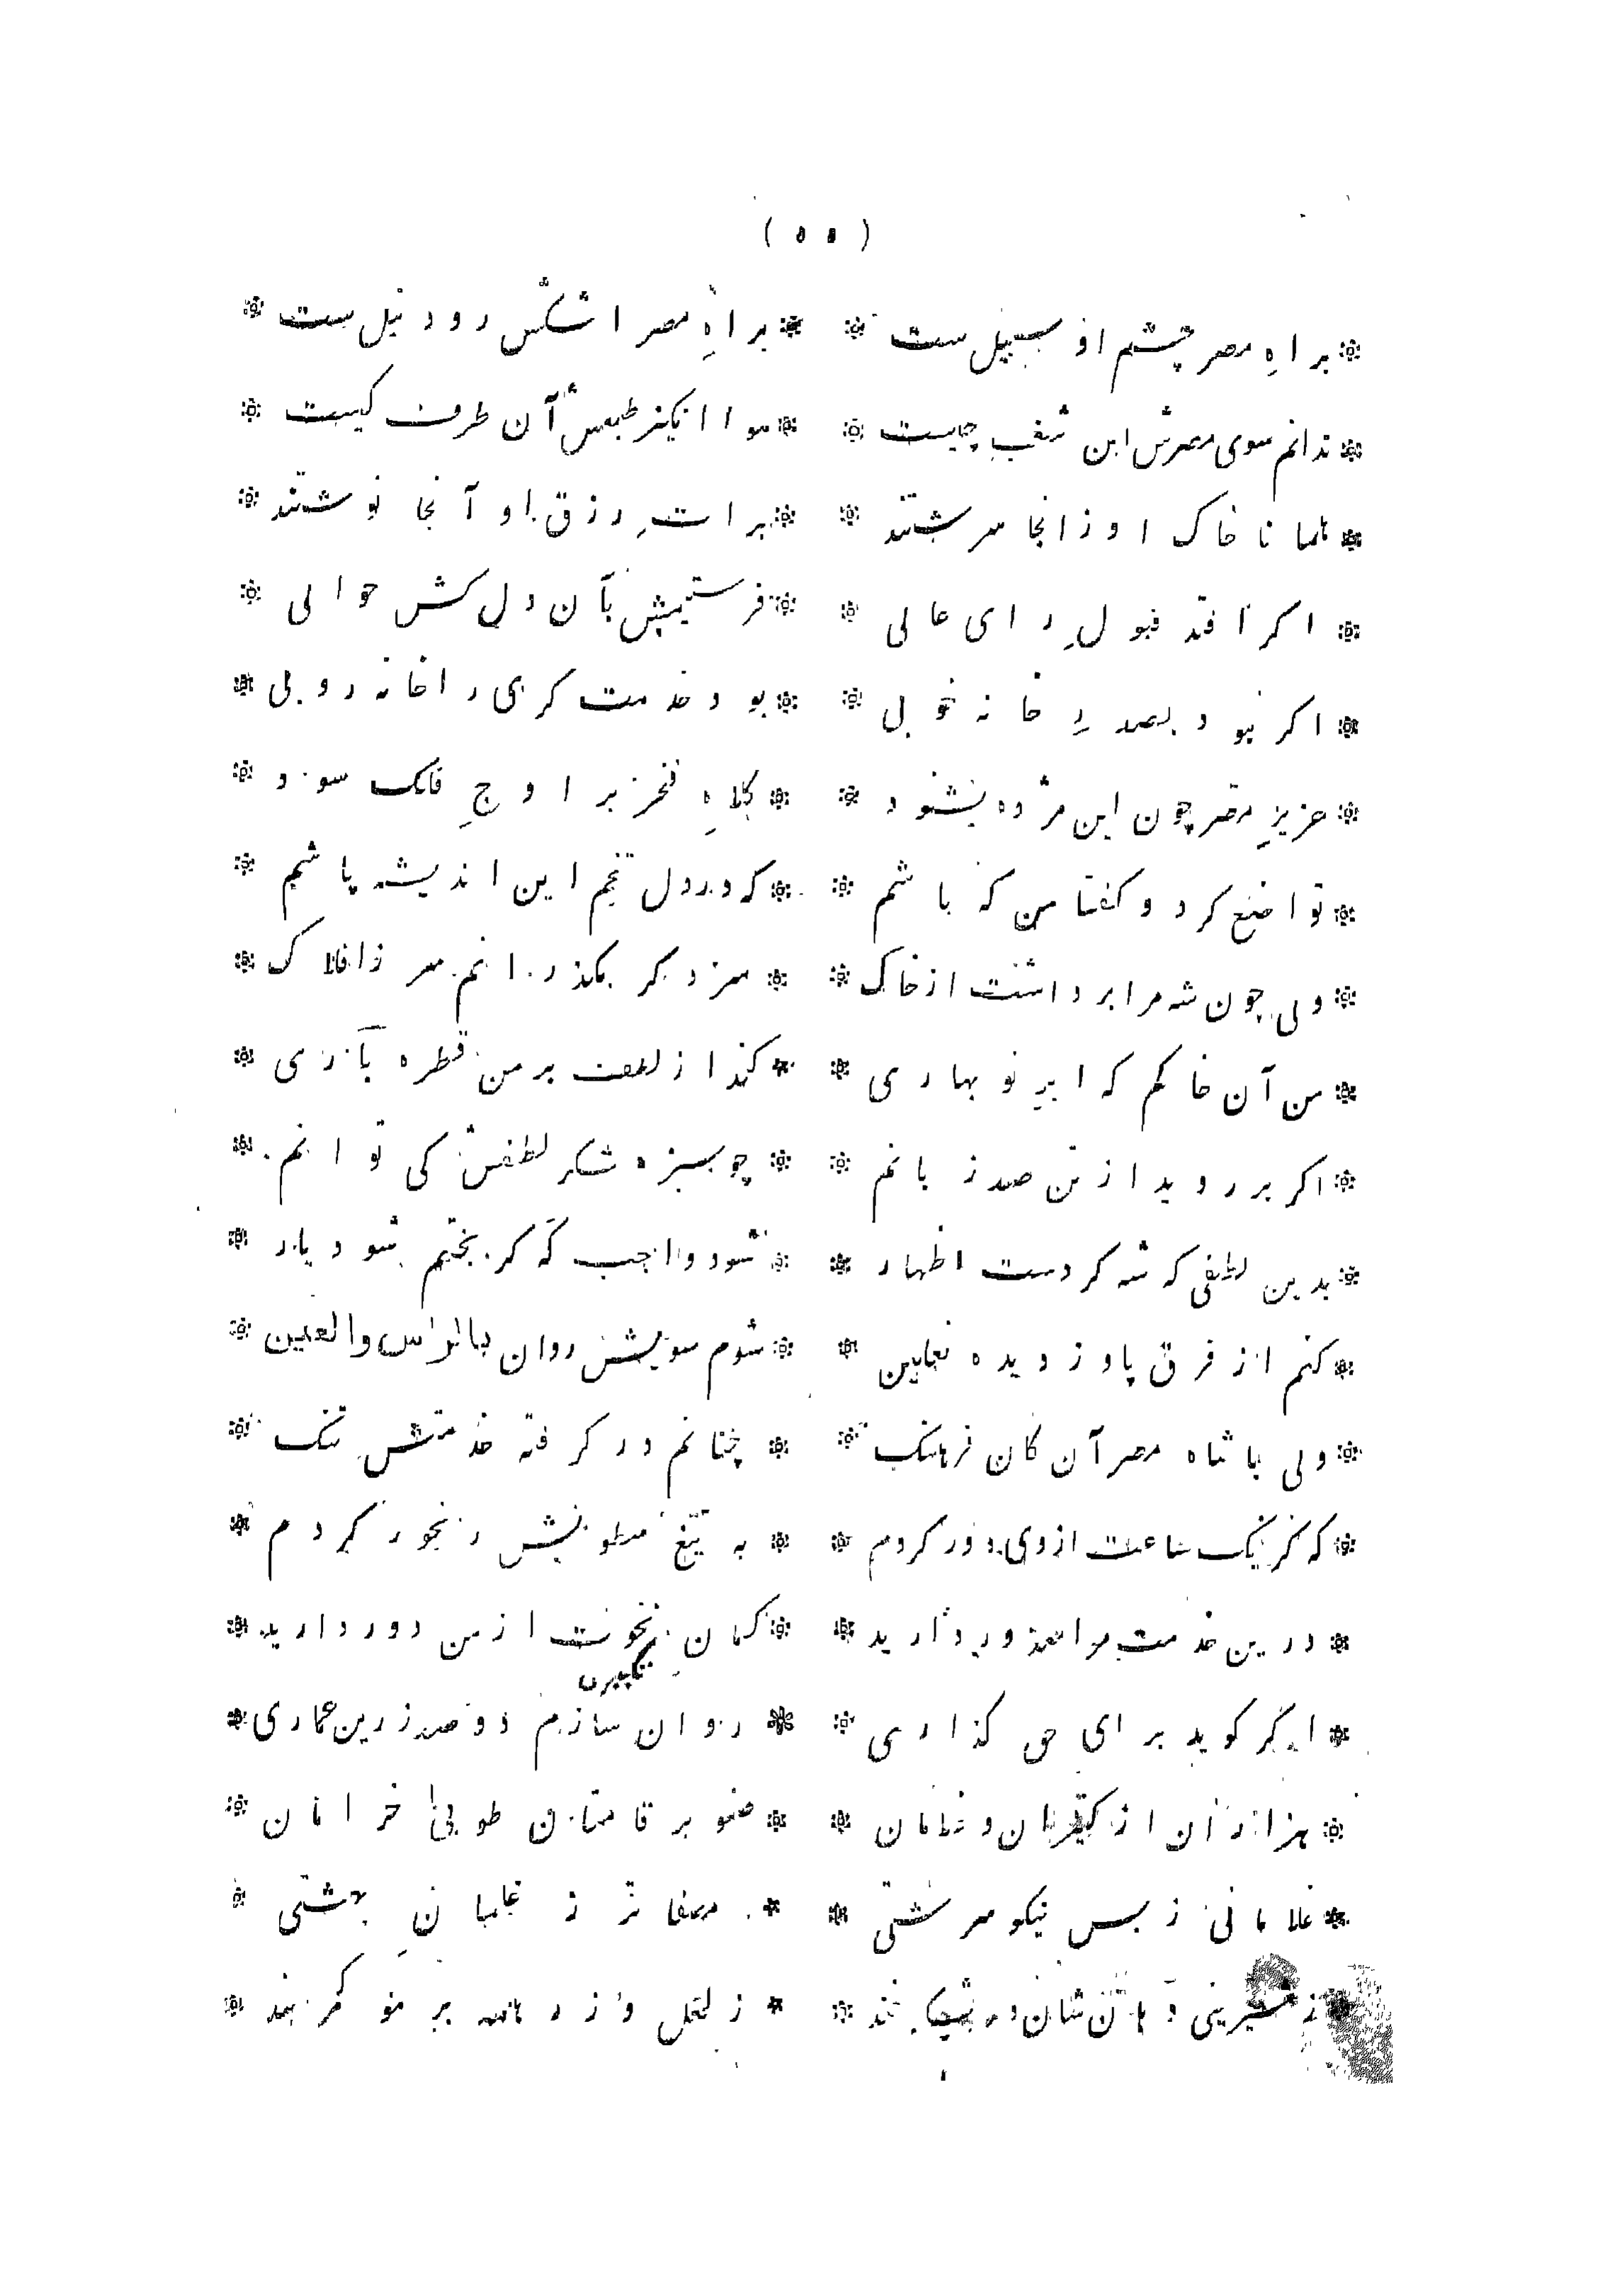 ( ٥٥ )
* براهِ مصر چشم او سبیل ست * براهِ مصر اشکش رود نیل ست *
* ندانم سوی مصرش این شغب چیست * هوا انکیز طبعش آن طرف کیست *
* همانا خاک او زانجا سرشتند * براتِ رزق او آنجا نوشتند *
* اکر افتد قبولِ رای عالی * فرستیمش بآن دل کش حوالی *
* اکر نبود بصدرِ خانه خوبی * بود خدمت کری را خانه روبی *
* عزیزِ مصر چون این مژده بشنود * کلاهِ فخر بر اوجِ فلک سود *
* تواضع کرد و کفتا من که باشم * که در دل تخم این اندیشه پاشم *
* ولی چون شه مرا برداشت از خاک * سزد کر بکذرانم سر ز افلاک *
* من آن خاکم که ابرِ نوبهاری * کند از لطف بر من قطره باری *
* اکر بر روید از تن صد زبانم * چو سبزه شکر لطفش کی توانم *
* بدین لطفی که شه کردست اظهار * شود واجب که کر بختم شود یار *
* کنم از فرق پا وز دیده نعلین * شوم سویش روان بالراس والعین *
* ولی با شاه مصر آن کان فرهنک * چنانم در کرفته خدمتش تنک *
* که کر یک ساعت از وی دور کردم * به تیغ سطوتش رنجور کردم *
* درین خدمت مرا معذور دارید * کمان نخوت از من دور دارید *
* اکر کوید برای حق کذاری * روان سازم دو صد زرین عماری *
* هزاران از کنیزان و غلامان * صنوبر قامتان طوبی خرامان *
* غلامانی ز بس نیکو سرشتی * مصفا تر ز غلمانِ بهشتی *
* ز شیرینی دهان شان در شکر خند * ز لعل و زر همه بر مو کمر بند *